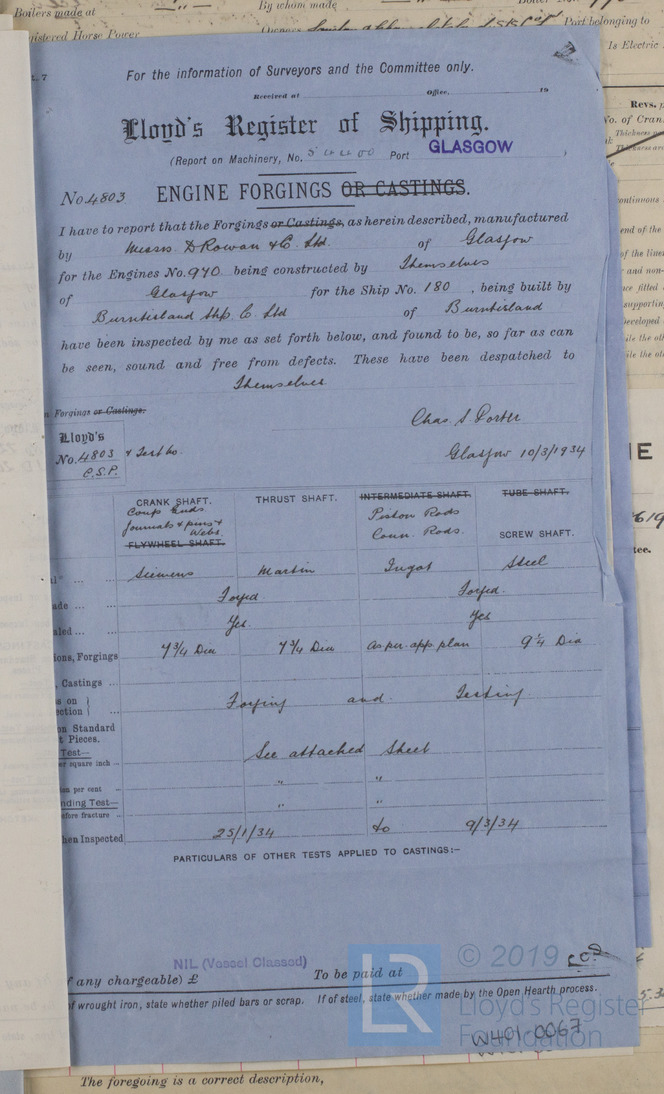 Boilers made at
By whom made
Boiler No.
Registered Horse Power
Owners
Port belonging to
Is Electric
For the information of Surveyors and the Committee only.
Received at Office, 19
Lloyd's Register of Shipping.
(Report on Machinery, No. Port GLASGOW )
No. 4803 ENGINE FORGINGS OR CASTINGS.
I have to report that the Forgings or Castings, as herein described, manufactured
by Messrs D Rowan & Co. Ltd. of Glasgow
for the Engines No. 970 being constructed by Themselves
of Glasgow for the Ship No. 180, being built by
Burntisland Shp. C. Ltd of Burntisland
have been inspected by me as set forth below, and found to be, so far as can
be seen, sound and free from defects. These have been despatched to
Themselves
Forgings or Castings.
Chas. S. Porter
Lloyd's
No. 4803 & Test No.
C.S.P.
Glasgow 10/3/1934
CRANK SHAFT. THRUST SHAFT. INTERMEDIATE SHAFT. TUBE SHAFT.
Coup Ends. Journals & pins & Webs. Piston Rods Conn. Rods.
FLYWHEEL SHAFT. SCREW SHAFT.
Siemens Martin Ingot Steel
Forged Forged.
Yes Yes
ions, Forgings 7 3/4 Dia 7 3/4 Dia As per. app. plan 9 1/4 Dia
, Castings ...
Forging and Testing
on Standard
t Pieces.
Test—
er square inch ...
See attached Sheet
per cent " "
nding Test—
efore fracture " "
hen Inspected 25/1/34 to 9/3/34
PARTICULARS OF OTHER TESTS APPLIED TO CASTINGS:—
NIL (Vessel Classed)
f any chargeable) £ To be paid at
f wrought iron, state whether piled bars or scrap. If of steel, state whether made by the Open Hearth process.
LR © 2019
Lloyd's Register
Foundation
W401-0067
The foregoing is a correct description,